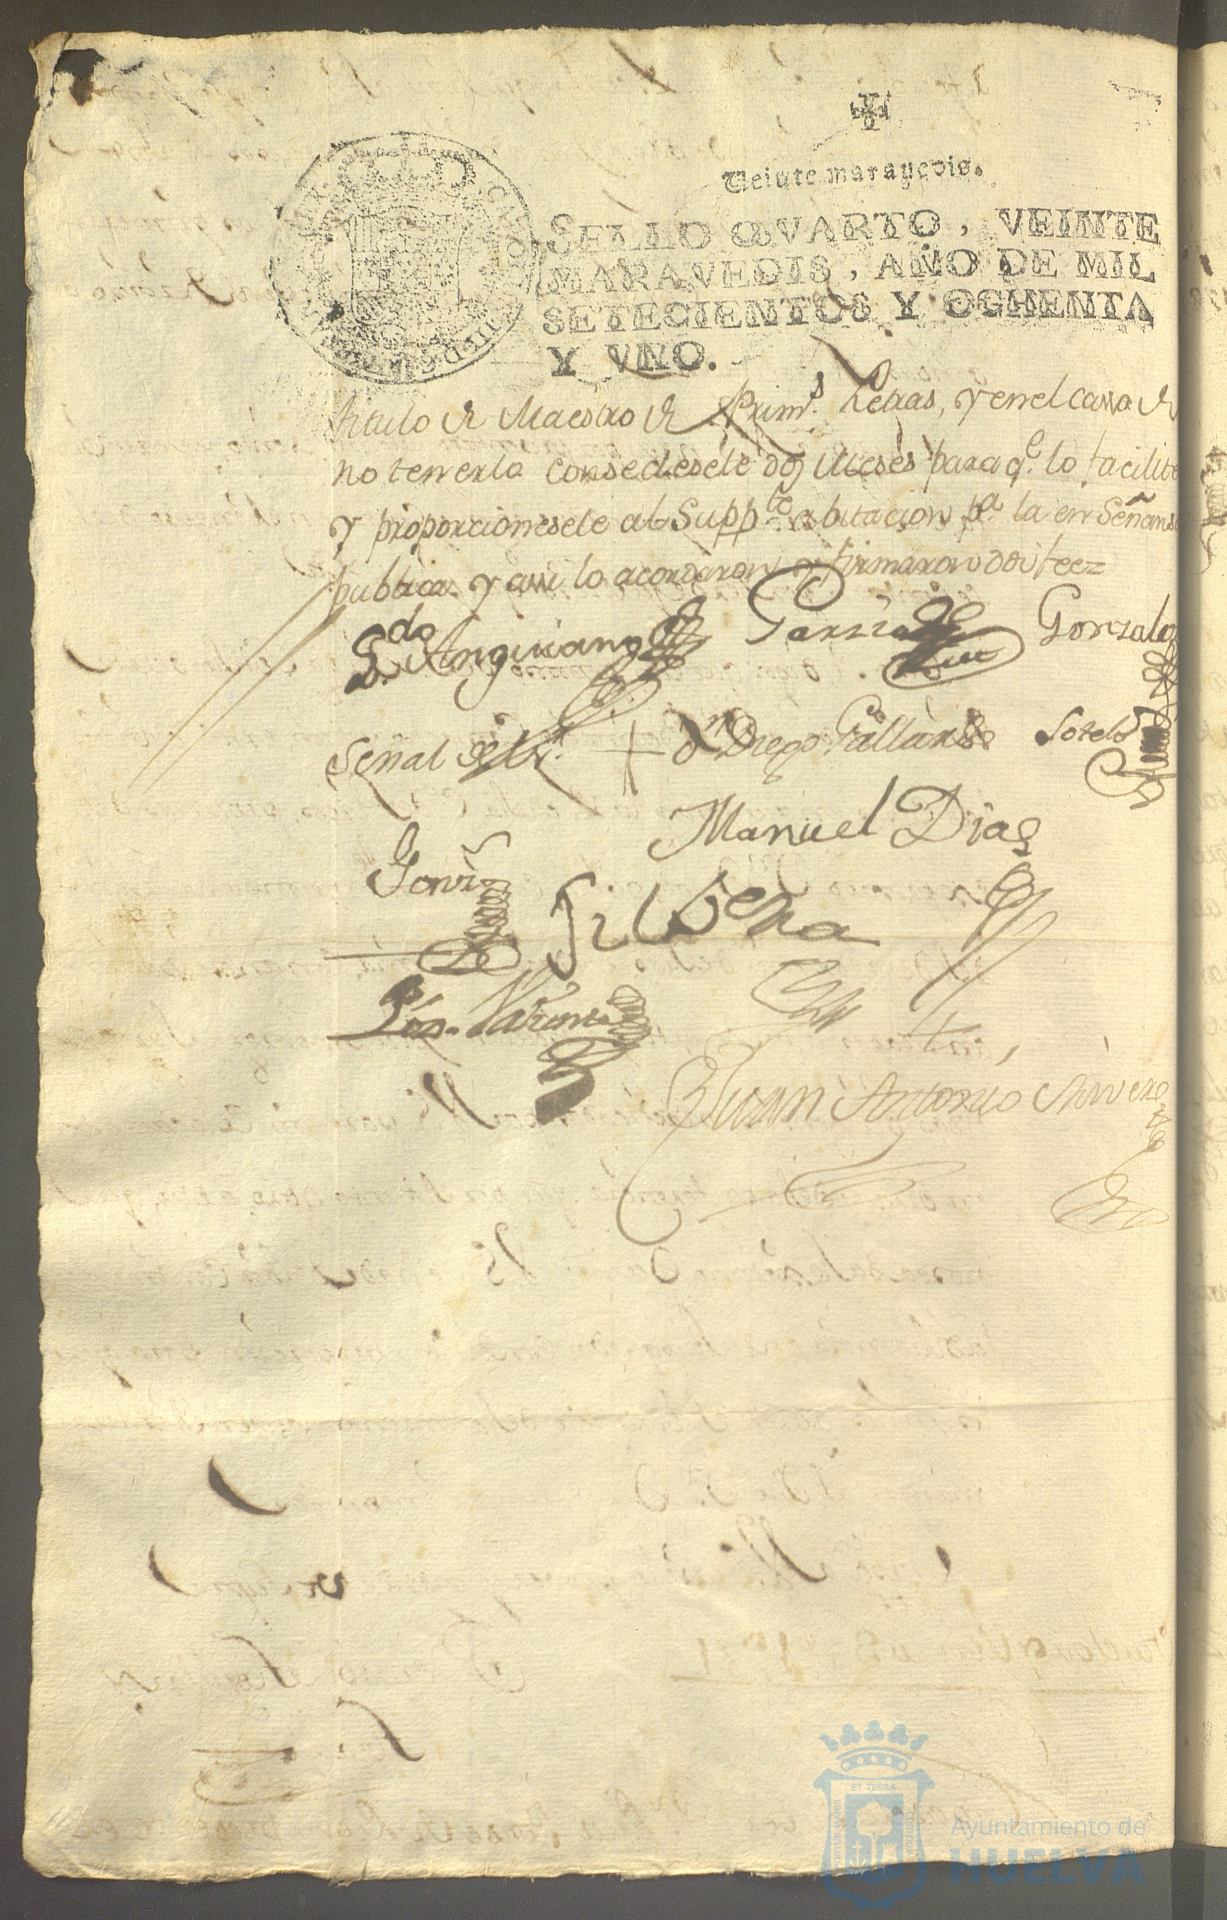 Veinte maravedis.
SELLO QVARTO, VEINTE
MARAVEDIS, AÑO DE MIL
SETECIENTOS Y OCHENTA
Y VNO.
titulo de Maestro de Prim.s Letras, y en el casso de
no tenerlo consedesele dos Meses para q.e lo facilite
y proporcionesele al Supp.te abitacion p.a la enSeñansa
publica y assi lo acordaron y firmaron doi fee=
L.do Anguiano Garzia Gonzalez
Señal de + D.n Diego Gallardo Sotelo
Manuel Dias
Gil Vera
Juan Antonio Rivero
ET TERRÆ
Ayuntamiento de
HUELVA